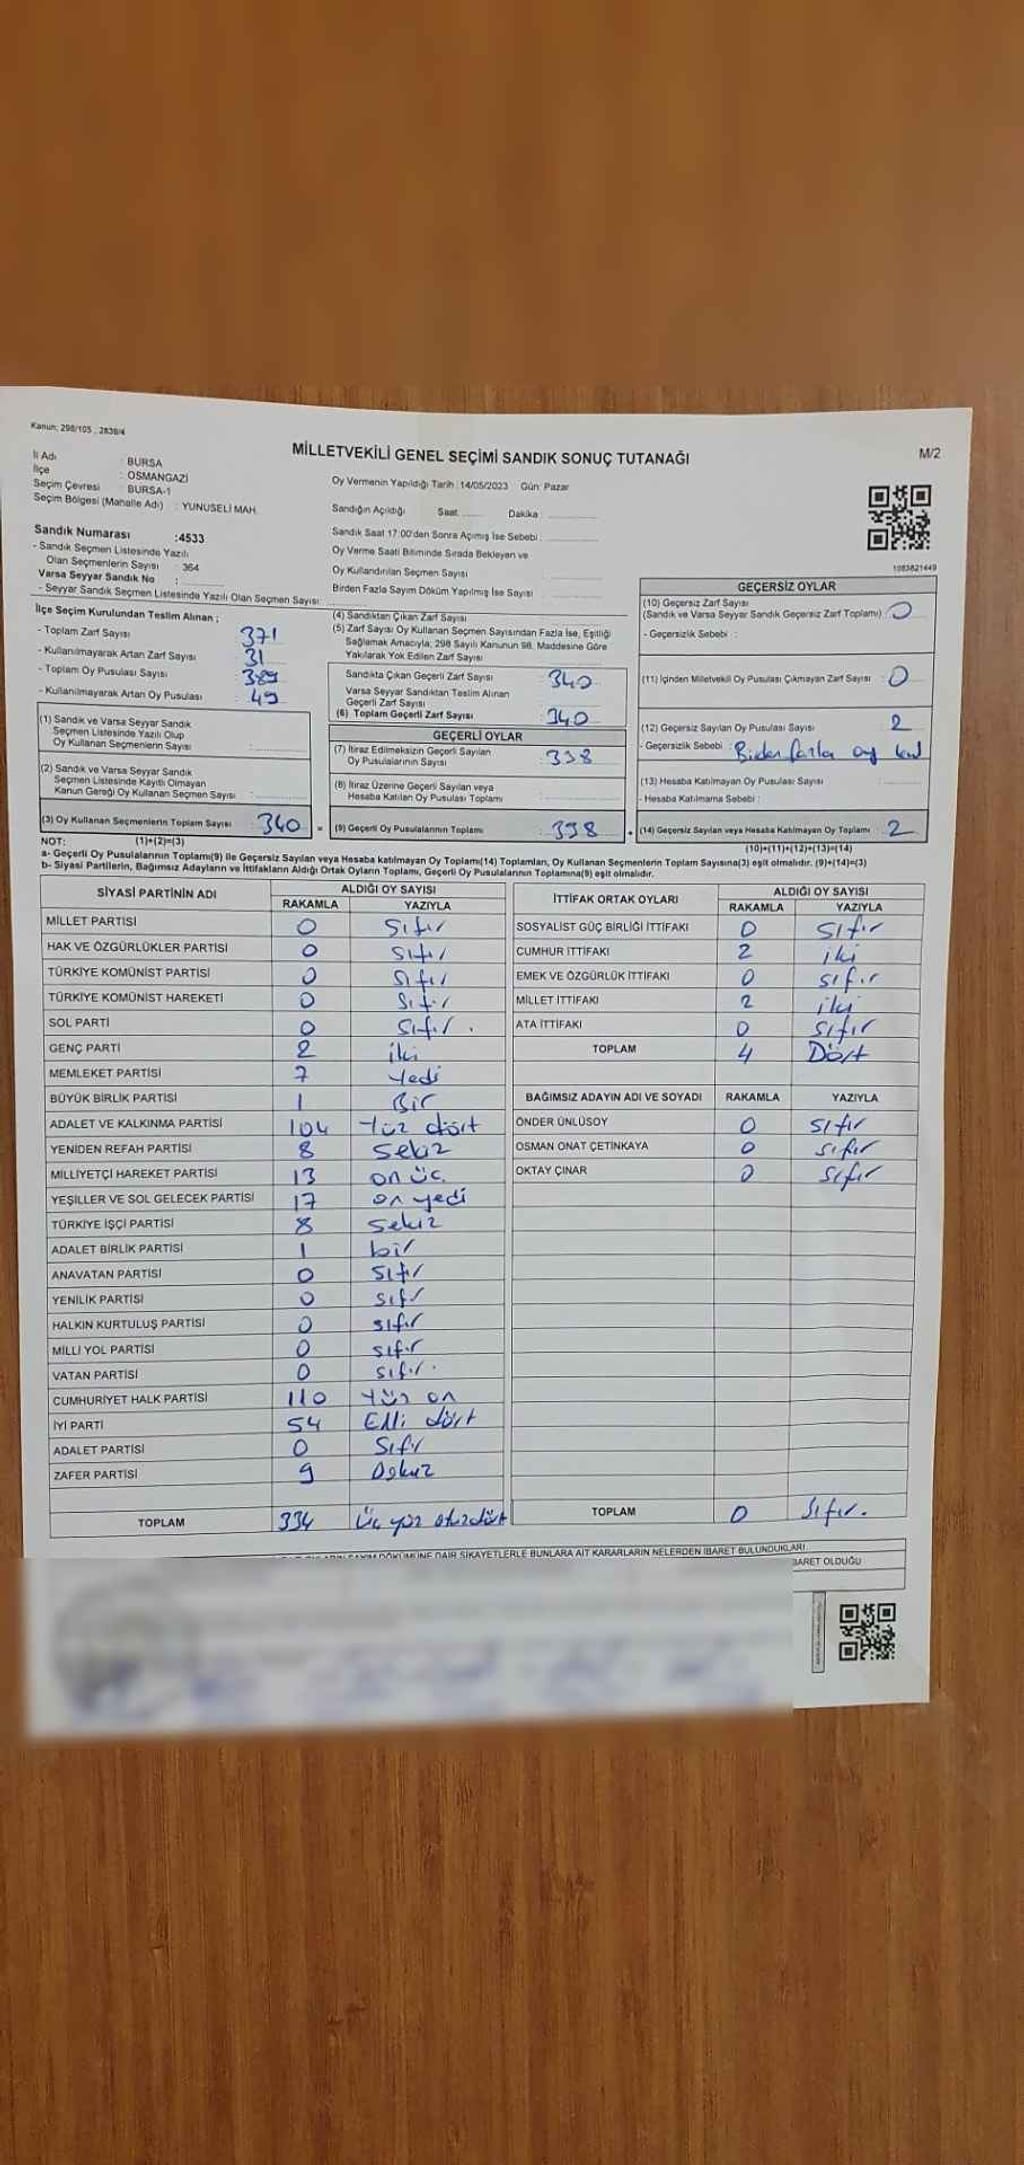 Kanun: 298/105 , 2839/4
MİLLETVEKİLİ GENEL SEÇİMİ SANDIK SONUÇ TUTANAĞI
M/2
İl Adı : BURSA
İlçe : OSMANGAZİ
Seçim Çevresi : BURSA-1
Seçim Bölgesi (Mahalle Adı) : YUNUSELİ MAH.
Sandık Numarası :4533
- Sandık Seçmen Listesinde Yazılı
Olan Seçmenlerin Sayısı : 364
Varsa Seyyar Sandık No :
- Seyyar Sandık Seçmen Listesinde Yazılı Olan Seçmen Sayısı:
Oy Vermenin Yapıldığı Tarih :14/05/2023 Gün: Pazar
Sandığın Açıldığı Saat Dakika
Sandık Saat 17:00'den Sonra Açımış İse Sebebi :
Oy Verme Saati Bitiminde Sırada Bekleyen ve
Oy Kullandırılan Seçmen Sayısı
Birden Fazla Sayım Döküm Yapılmış İse Sayısı
1083821449
İlçe Seçim Kurulundan Teslim Alınan ;
- Toplam Zarf Sayısı 371
- Kullanılmayarak Artan Zarf Sayısı 31
- Toplam Oy Pusulası Sayısı : 389
- Kullanılmayarak Artan Oy Pusulası : 49
(1) Sandık ve Varsa Seyyar Sandık
Seçmen Listesinde Yazılı Olup
Oy Kullanan Seçmenlerin Sayısı
(2) Sandık ve Varsa Seyyar Sandık
Seçmen Listesinde Kayıtlı Olmayan
Kanun Gereği Oy Kullanan Seçmen Sayısı :
(3) Oy Kullanan Seçmenlerin Toplam Sayısı : 340
(1)+(2)=(3)
(4) Sandıktan Çıkan Zarf Sayısı
(5) Zarf Sayısı Oy Kullanan Seçmen Sayısından Fazla İse, Eşitliği
Sağlamak Amacıyla; 298 Sayılı Kanunun 98. Maddesine Göre
Yakılarak Yok Edilen Zarf Sayısı
Sandıkta Çıkan Geçerli Zarf Sayısı 340
Varsa Seyyar Sandıktan Teslim Alınan
Geçerli Zarf Sayısı
(6) Toplam Geçerli Zarf Sayısı : 340
GEÇERLİ OYLAR
(7) İtiraz Edilmeksizin Geçerli Sayılan
Oy Pusulalarının Sayısı : 338
(8) İtiraz Üzerine Geçerli Sayılan veya
Hesaba Katılan Oy Pusulası Toplamı
= (9) Geçerli Oy Pusulalarının Toplamı : 338
GEÇERSİZ OYLAR
(10) Geçersiz Zarf Sayısı
(Sandık ve Varsa Seyyar Sandık Geçersiz Zarf Toplamı) : 0
- Geçersizlik Sebebi :
(11) İçinden Milletvekili Oy Pusulası Çıkmayan Zarf Sayısı : 0
(12) Geçersiz Sayılan Oy Pusulası Sayısı 2
- Geçersizlik Sebebi : Birden fazla oy kul
(13) Hesaba Katılmayan Oy Pusulası Sayısı
- Hesaba Katılmama Sebebi :
+ (14) Geçersiz Sayılan veya Hesaba Katılmayan Oy Toplamı : 2
(10)+(11)+(12)+(13)=(14)
NOT:
a- Geçerli Oy Pusulalarının Toplamı(9) ile Geçersiz Sayılan veya Hesaba katılmayan Oy Toplamı(14) Toplamları, Oy Kullanan Seçmenlerin Toplam Sayısına(3) eşit olmalıdır. (9)+(14)=(3)
b- Siyasi Partilerin, Bağımsız Adayların ve İttifakların Aldığı Ortak Oyların Toplamı, Geçerli Oy Pusulalarının Toplamına(9) eşit olmalıdır.
SİYASİ PARTİNİN ADI ALDIĞI OY SAYISI
RAKAMLA YAZIYLA
MİLLET PARTİSİ 0 Sıfır
HAK VE ÖZGÜRLÜKLER PARTİSİ 0 Sıfır
TÜRKİYE KOMÜNİST PARTİSİ 0 Sıfır
TÜRKİYE KOMÜNİST HAREKETİ 0 Sıfır
SOL PARTİ 0 Sıfır.
GENÇ PARTİ 2 iki
MEMLEKET PARTİSİ 7 Yedi
BÜYÜK BİRLİK PARTİSİ 1 Bir
ADALET VE KALKINMA PARTİSİ 104 Yüz dört
YENİDEN REFAH PARTİSİ 8 Sekiz
MİLLİYETÇİ HAREKET PARTİSİ 13 on üç
YEŞİLLER VE SOL GELECEK PARTİSİ 17 on yedi
TÜRKİYE İŞÇİ PARTİSİ 8 Sekiz
ADALET BİRLİK PARTİSİ 1 bir
ANAVATAN PARTİSİ 0 Sıfır
YENİLİK PARTİSİ 0 Sıfır
HALKIN KURTULUŞ PARTİSİ 0 sıfır
MİLLİ YOL PARTİSİ 0 sıfır
VATAN PARTİSİ 0 sıfır.
CUMHURİYET HALK PARTİSİ 110 Yüz on
İYİ PARTİ 54 Elli dört
ADALET PARTİSİ 0 Sıfır
ZAFER PARTİSİ 9 Dokuz
TOPLAM 334 Üç yüz otuzdört
İTTİFAK ORTAK OYLARI ALDIĞI OY SAYISI
RAKAMLA YAZIYLA
SOSYALİST GÜÇ BİRLİĞİ İTTİFAKI 0 Sıfır
CUMHUR İTTİFAKI 2 iki
EMEK VE ÖZGÜRLÜK İTTİFAKI 0 sıfır
MİLLET İTTİFAKI 2 iki
ATA İTTİFAKI 0 Sıfır
TOPLAM 4 Dört
BAĞIMSIZ ADAYIN ADI VE SOYADI RAKAMLA YAZIYLA
ÖNDER ÜNLÜSOY 0 sıfır
OSMAN ONAT ÇETİNKAYA 0 sıfır
OKTAY ÇINAR 0 sıfır
TOPLAM 0 Sıfır.
SAYIM DÖKÜMÜNE DAİR ŞİKAYETLERLE BUNLARA AİT KARARLARIN NELERDEN İBARET BULUNDUKLARI.
BARET OLDUĞU